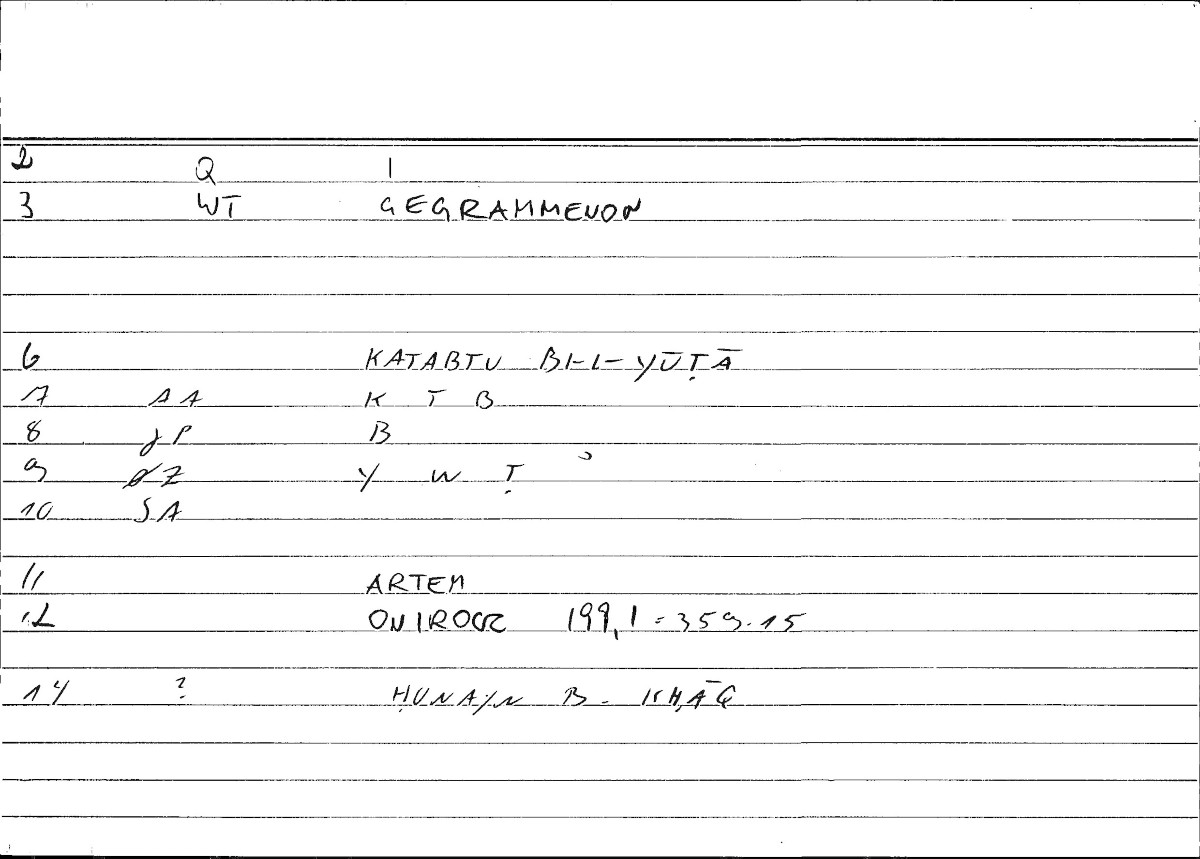 2 Q I
3 WT GEGRAMMENON
6 KATABTU BI-L-YŪṬĀ
7 AA K T B
8 JP B
9 Z Y W Ṭ ʾ
10 SA
11 ARTEM
12 ONIROCR 199,1 = 359.15
14 ? ḤUNAYN B.